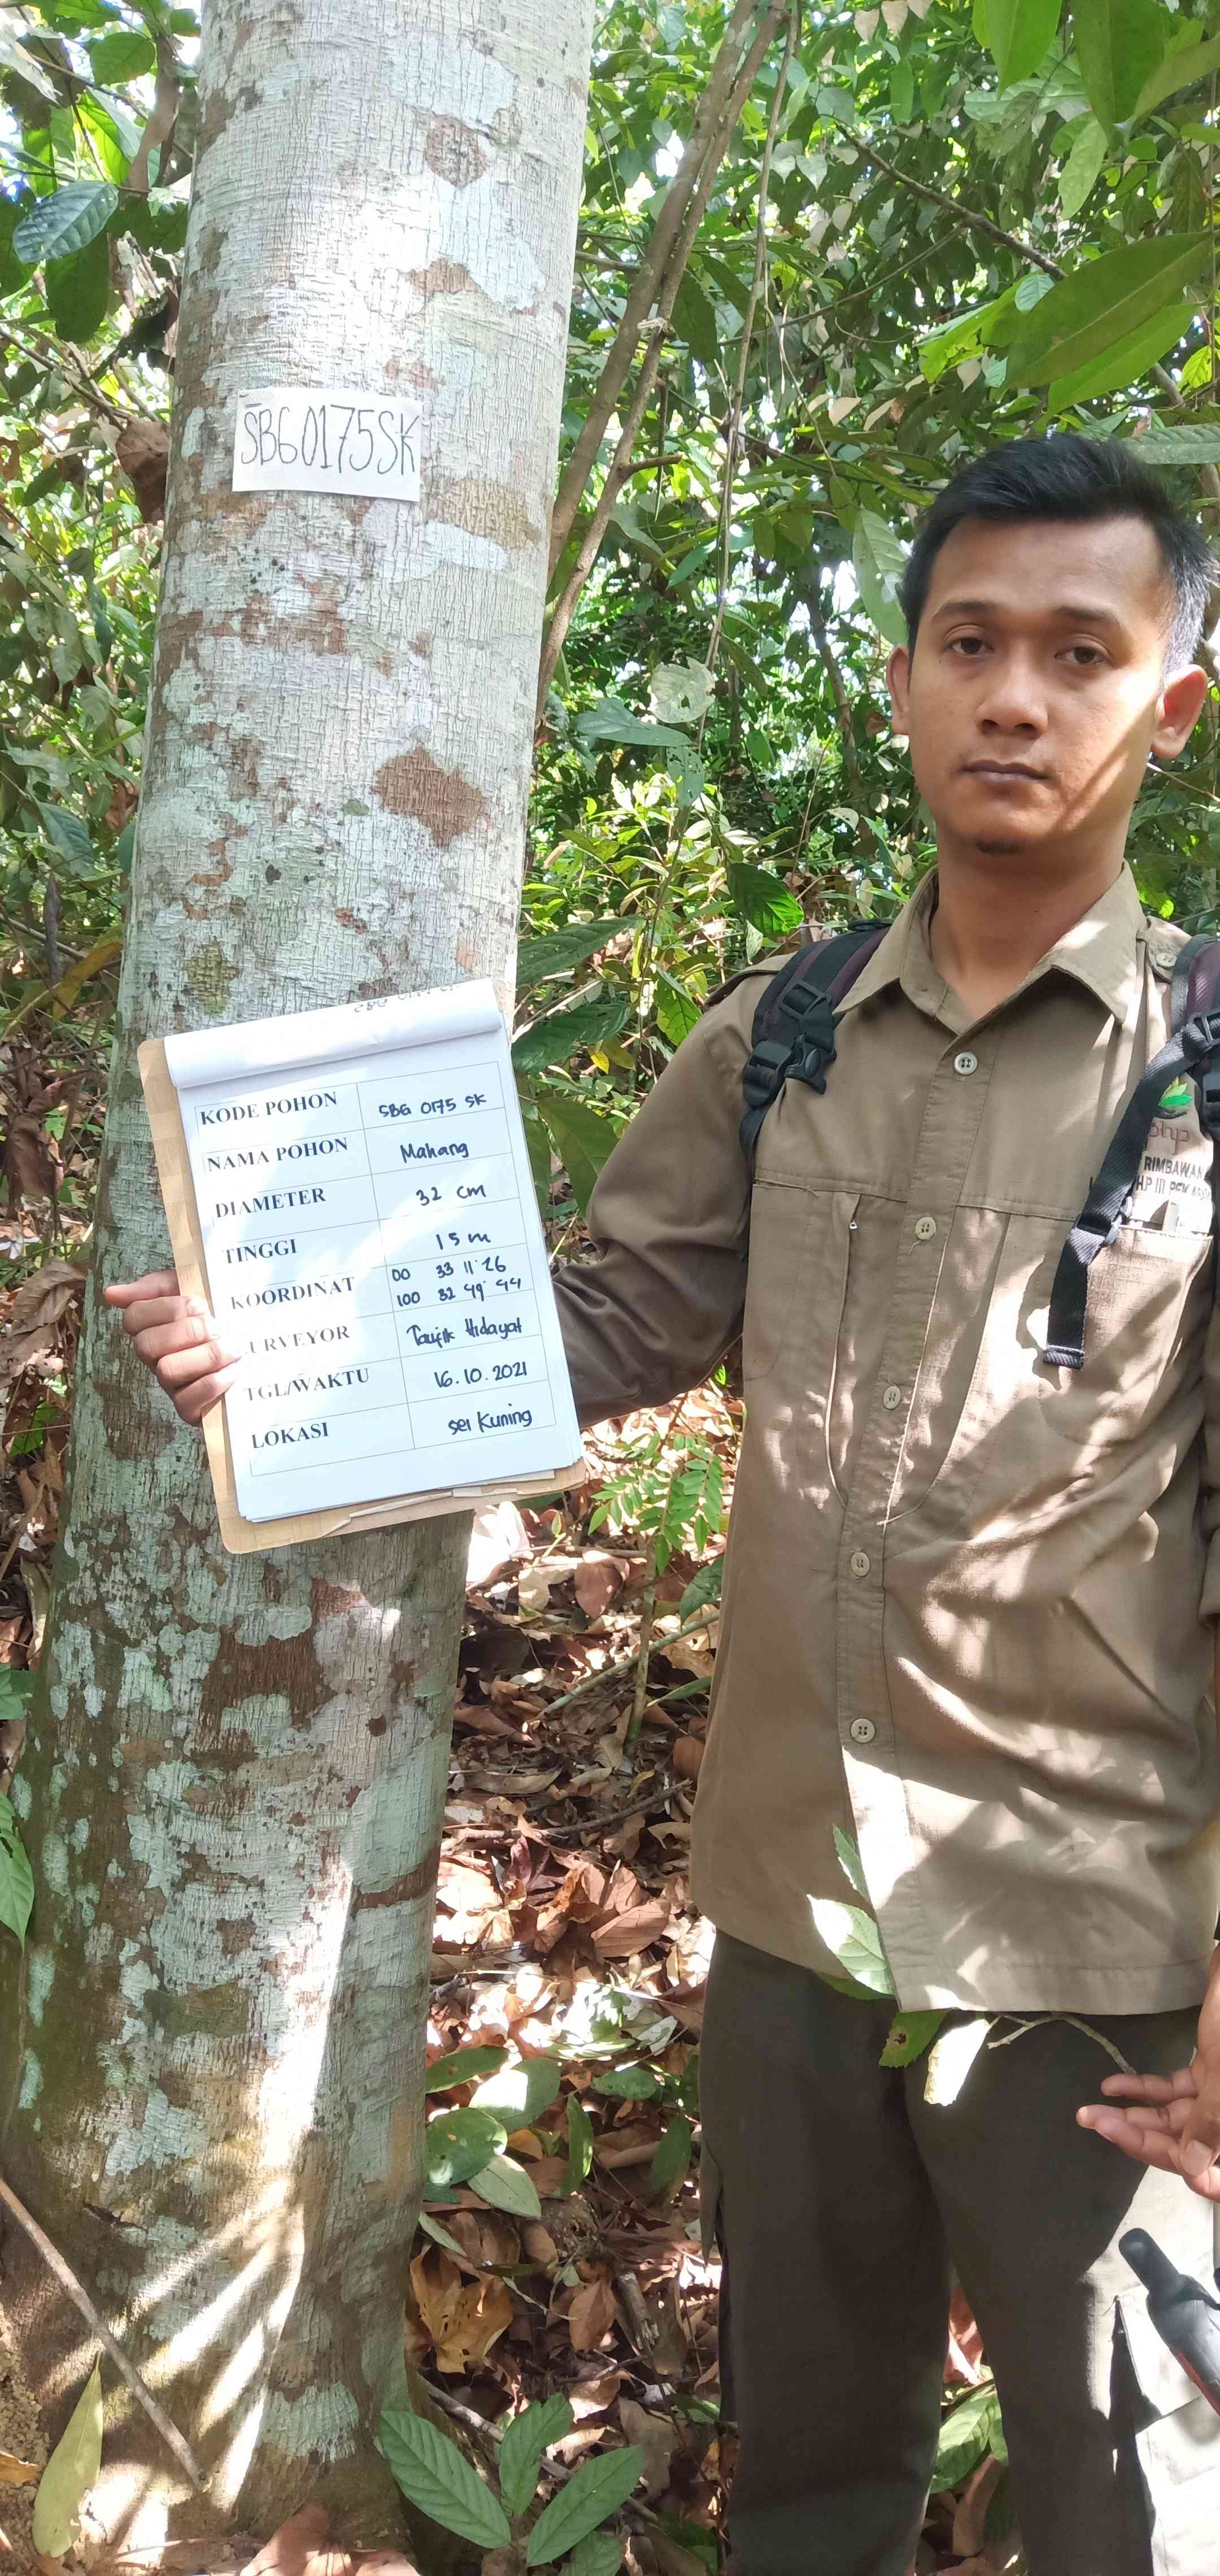 SBG0175SK
KODE POHON SBG 0175 SK
NAMA POHON Mahang
DIAMETER 32 cm
TINGGI 15 m
KOORDINAT 00 33 11' 26
100 32 49' 44
URVEYOR Taufik Hidayat
TGL/WAKTU 16.10.2021
LOKASI Sei Kuning
php
RIMBAWAN